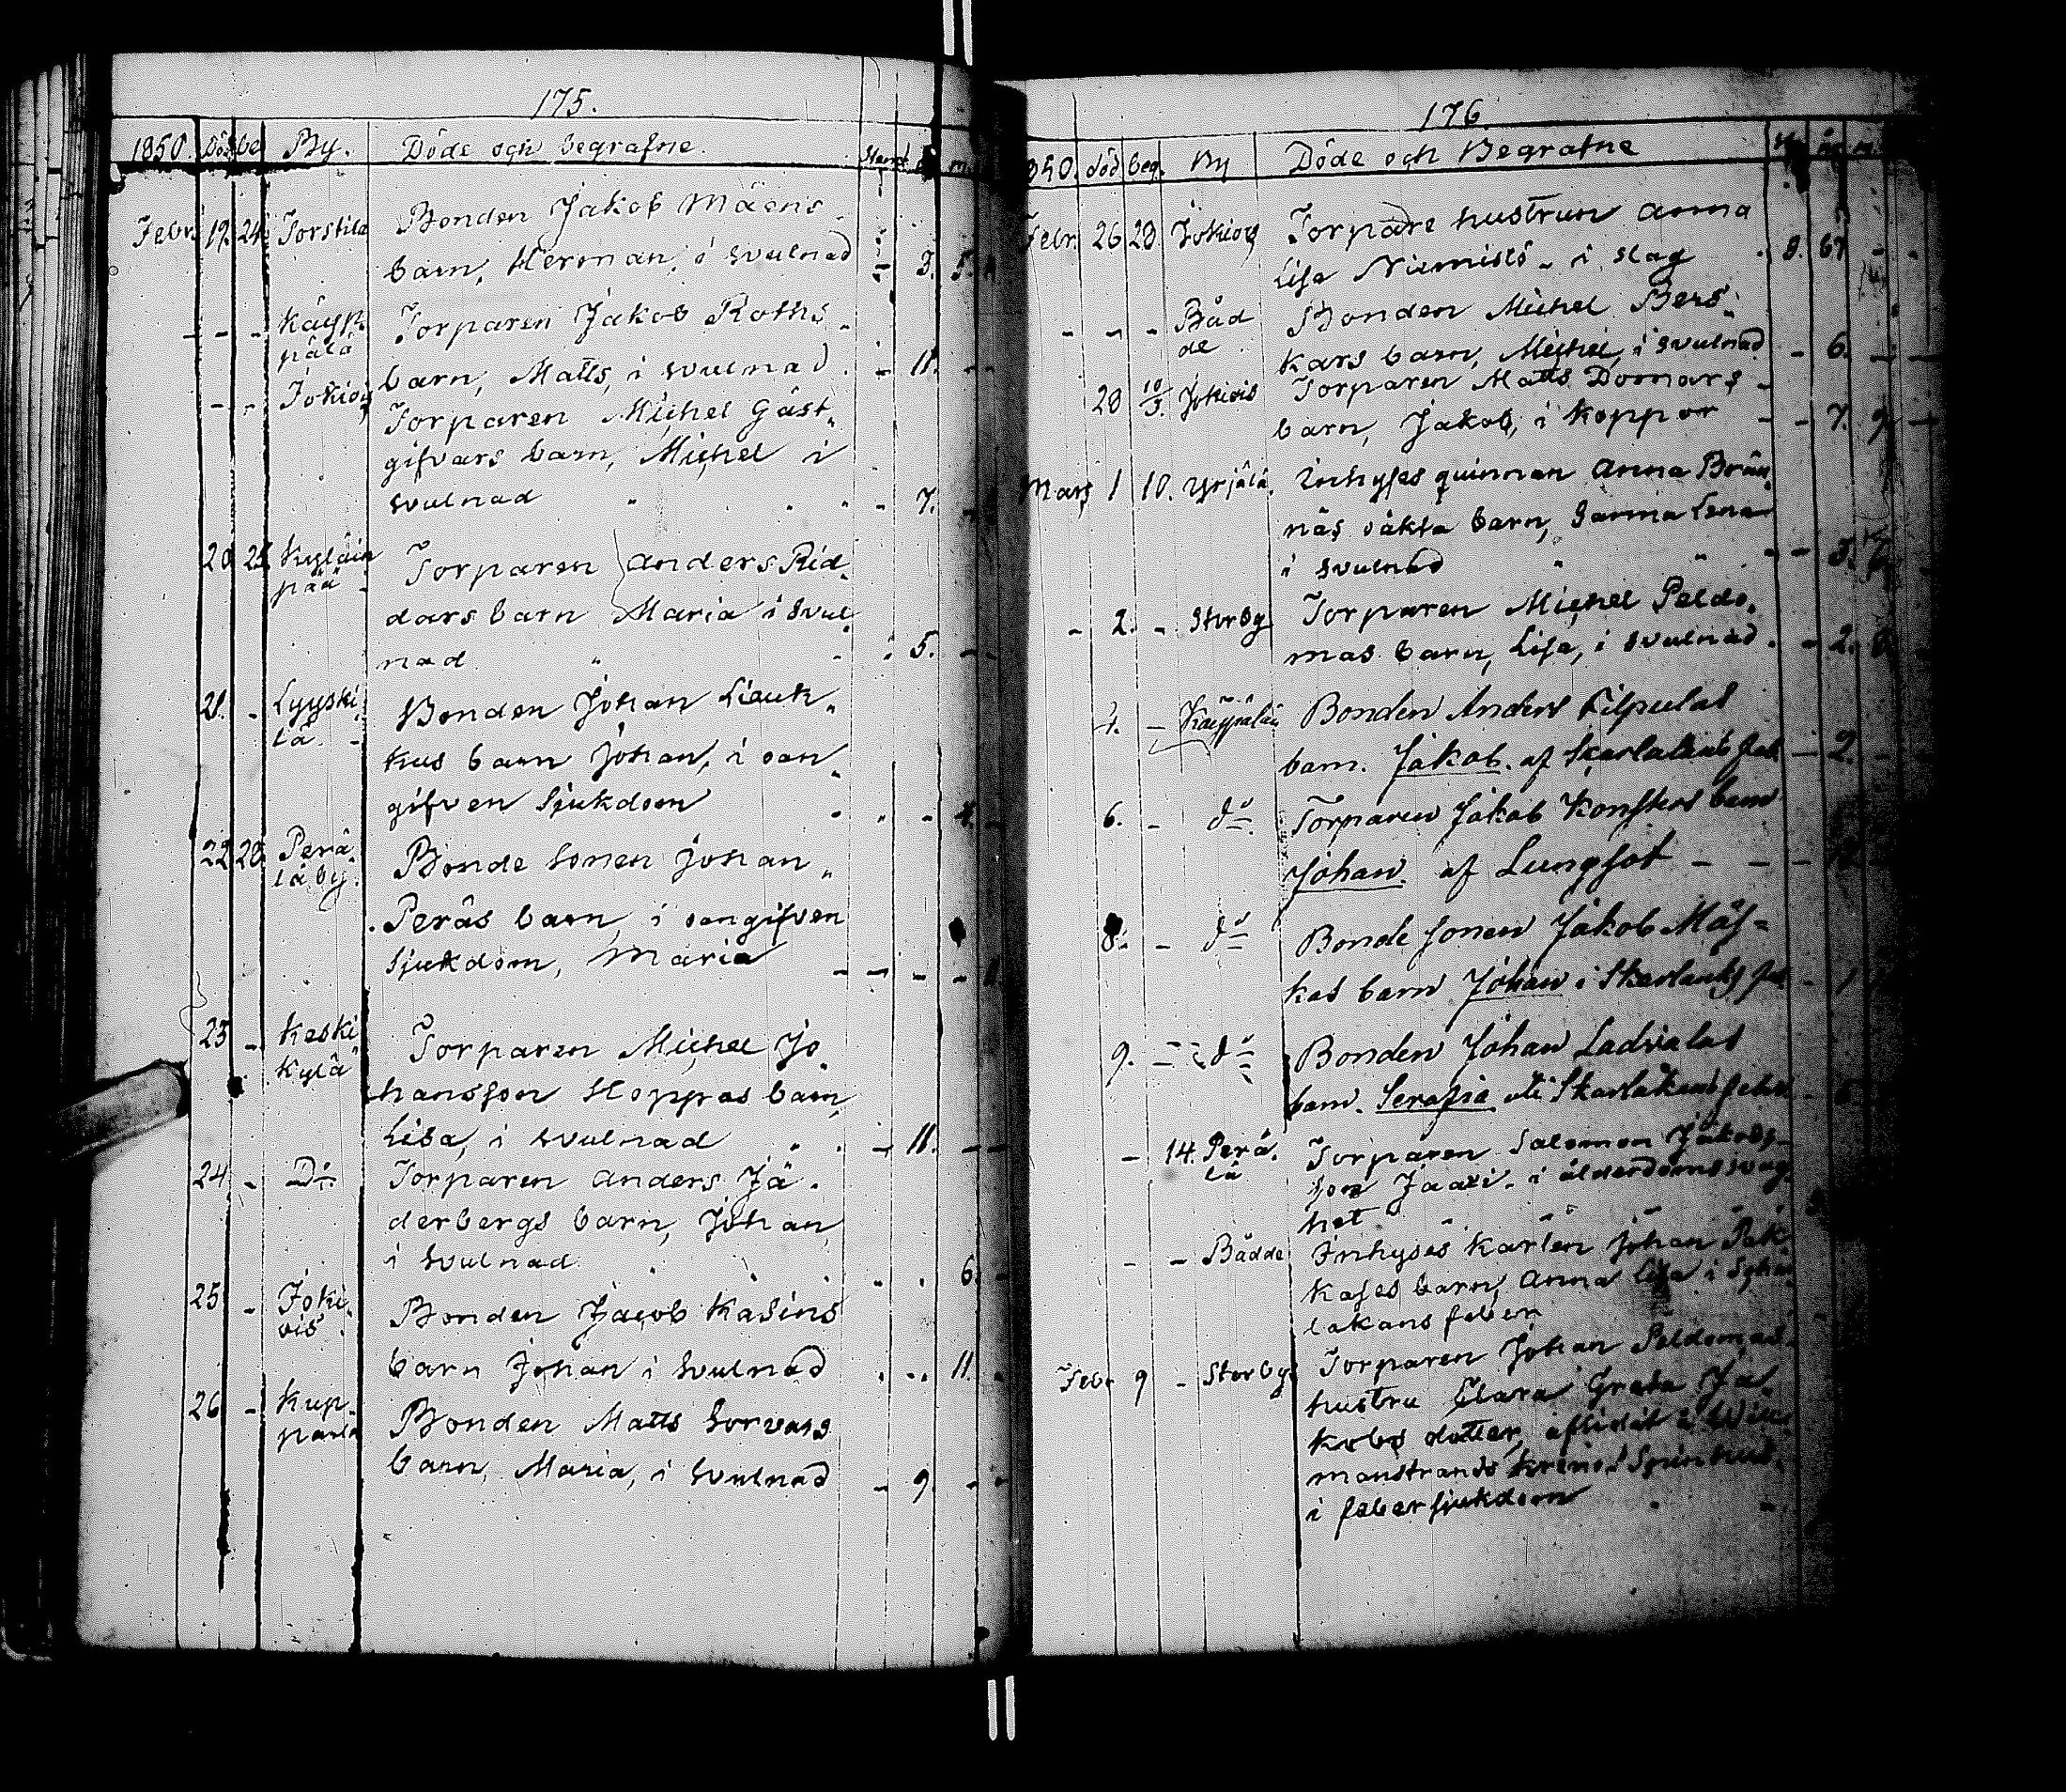 175.
1850. Död be By. Döde och begrafne.
Febr. 19. 24. Torstila Bonden Jakob Mäens
barn, Herman, i svulnad - 3. 5.
- - - Käyp- Torparen Jakob Roths
pälä barn, Matts, i svulnad - 11. - -
- - Jokiois Torparen Michel Gäst-
gifvars barn, Michel i
svulnad " - 7. -
20 25 Kyläin Torparen Anders Rid-
pää dars barn Maria i svul-
nad " 5. - -
21. - Lyyski- Bonden Johan Liuk-
lä kus barn Johan, i oan-
gifven Sjukdom - 4. -
22 28 Perä- Bonde Sonen Johan
lä by. Peräs barn, i oangifven
Sjukdom, Maria - - - -
23 - Keski Torparen Michel Jo-
Kylä hansson Hoppas barn
Lisa, i svulnad - 11. - -
24 - Do Torparen Anders Jä-
derbergs barn, Johan,
i svulnad 6. -
25 - Joki- Bonden Jacob Kasins
ois barn Johan i Svulnad 11.
26 - Kup- Bonden Matts Sorvars
parla barn, Maria, i Svulnad - 9 - -
176.
850. död beg. By Döde och Begrafne
Febr. 26 28 Jokiois Torpare hustrun Anna
Lisa Niemistö - i slag 8. 67 -
- - - Båd Bonden Michel Bers-
de kars barn, Michel, i svulnad - 6. -
28 10/3. Jokiois Torparen Matts Domars
barn, Jakob, i Koppor - - 7. 9 -
Mars 1 10. Yrjälä. Inhyses quinnan Anna Brän-
näs oäkta barn, Sanna Lena
i svulnad " " - - 3.
- 2. - Storby Torparen Michel Peldo-
mas barn, Lisa, i svulnad - 2. 8.
4. - Käypälä Bonden Anders Filpulas
barn. Jakob. af Skarlakans feb - 2. -
6. - do Torparen Jakob Konsters barn
Johan af Lungsot - - -
8. - do Bonde sonen Jakob Mäs-
kas barn Johan i Skarlanks fe - 1
9. - do Bonden Johan Ladvalas
barn. Serafia uti Skarlakans feber
- 14. Perä- Torparen Salomon Jakobs-
lä son Jaari - i ålderdoms svag-
het " " - -
- - Bådde Inhyses Karlen Johan Pak-
kases barn, Anna Lisa i Schar-
lakans feber
Febr 9 - Storby Torparen Johan Peldomas
hustru Clara Greta Ja-
kobs dotter, aflidit i Will-
manstrands Krono Spinhus
i feber sjukdom